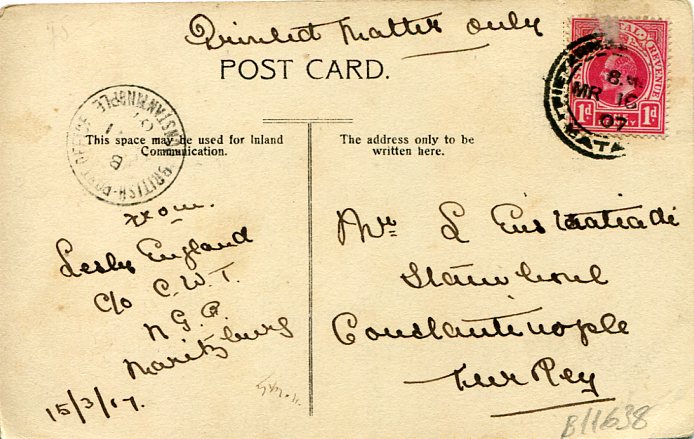 Printed Matter only
POST CARD.
POSTAGE & REVENUE
1d 1d
8.
MR 16
07
NATAL
BRITISH POST OFFICE CONSTANTINOPLE
This space may be used for Inland
Communication.
The address only to be
written here.
From.
Lesly England
c/o C.W.T.
N G R.
Maritzburg
15/3/07.
Mr L Eustatiadi
Stamboul
Constantinople
Turkey
B11638